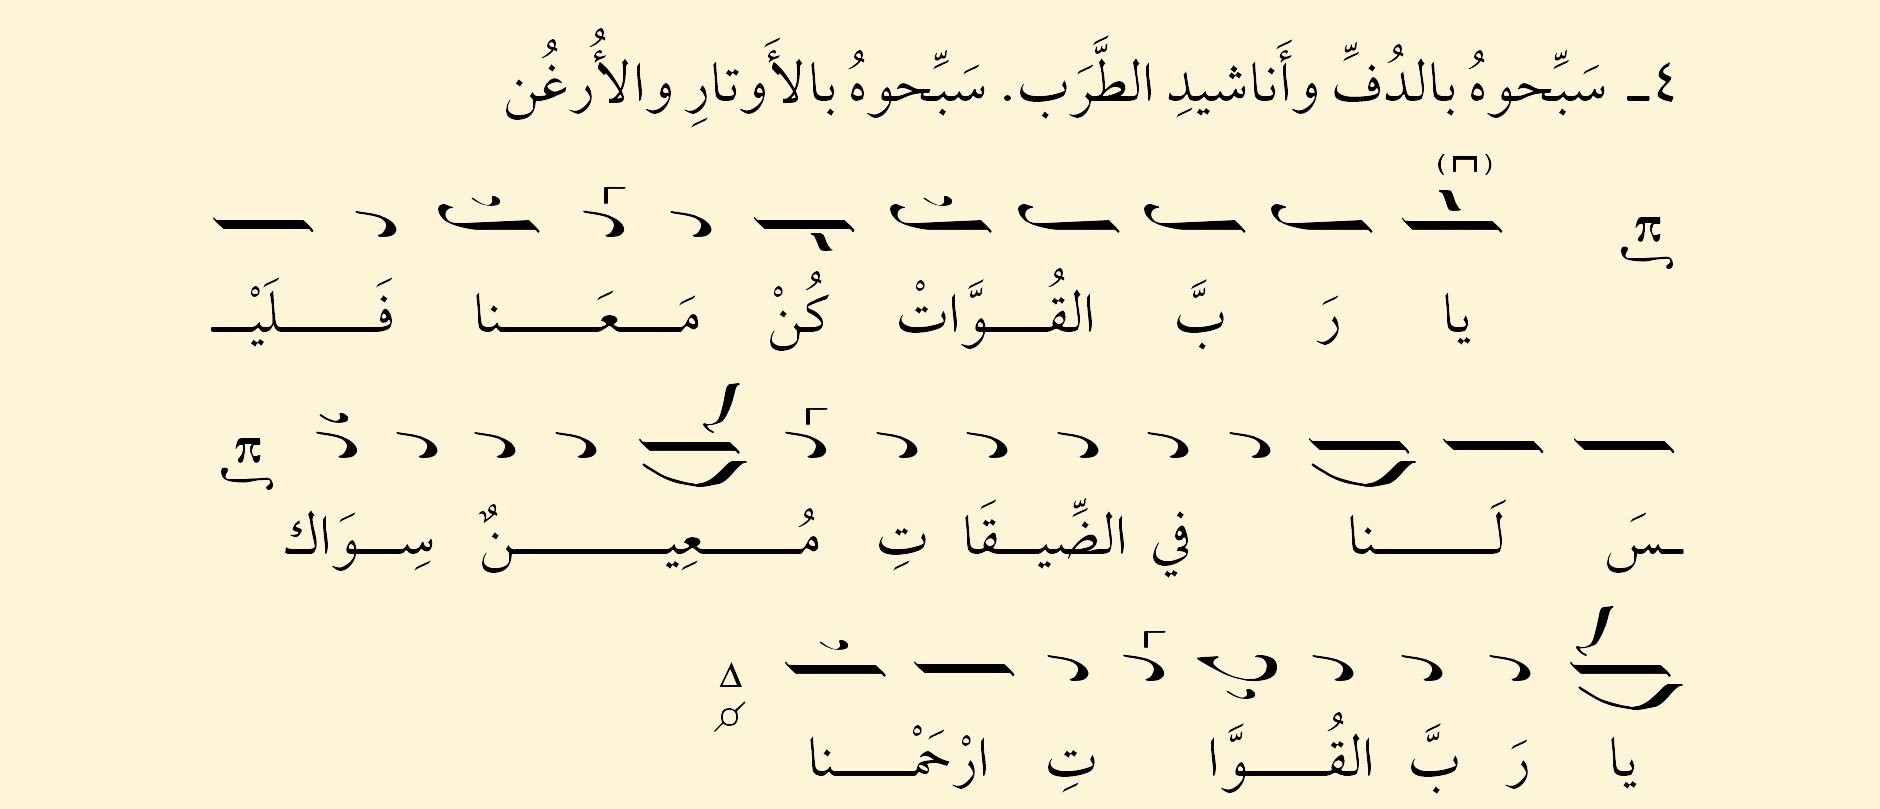 ٤ـ سَبِّحوهُ بالدُفِّ وأَناشيدِ الطَّرَب. سَبِّحوهُ بالأَوتارِ والأُرغُن
π
يا رَ بَّ القُـوَّاتْ كُنْ مَـعَـنا فَـلَيْـ
ـسَ لَـنا في الضِّيـقَا تِ مُـعِيـنٌ سِـوَاك
π
يا رَ بَّ القُـوَّا تِ ارْحَمْـنا
Δ